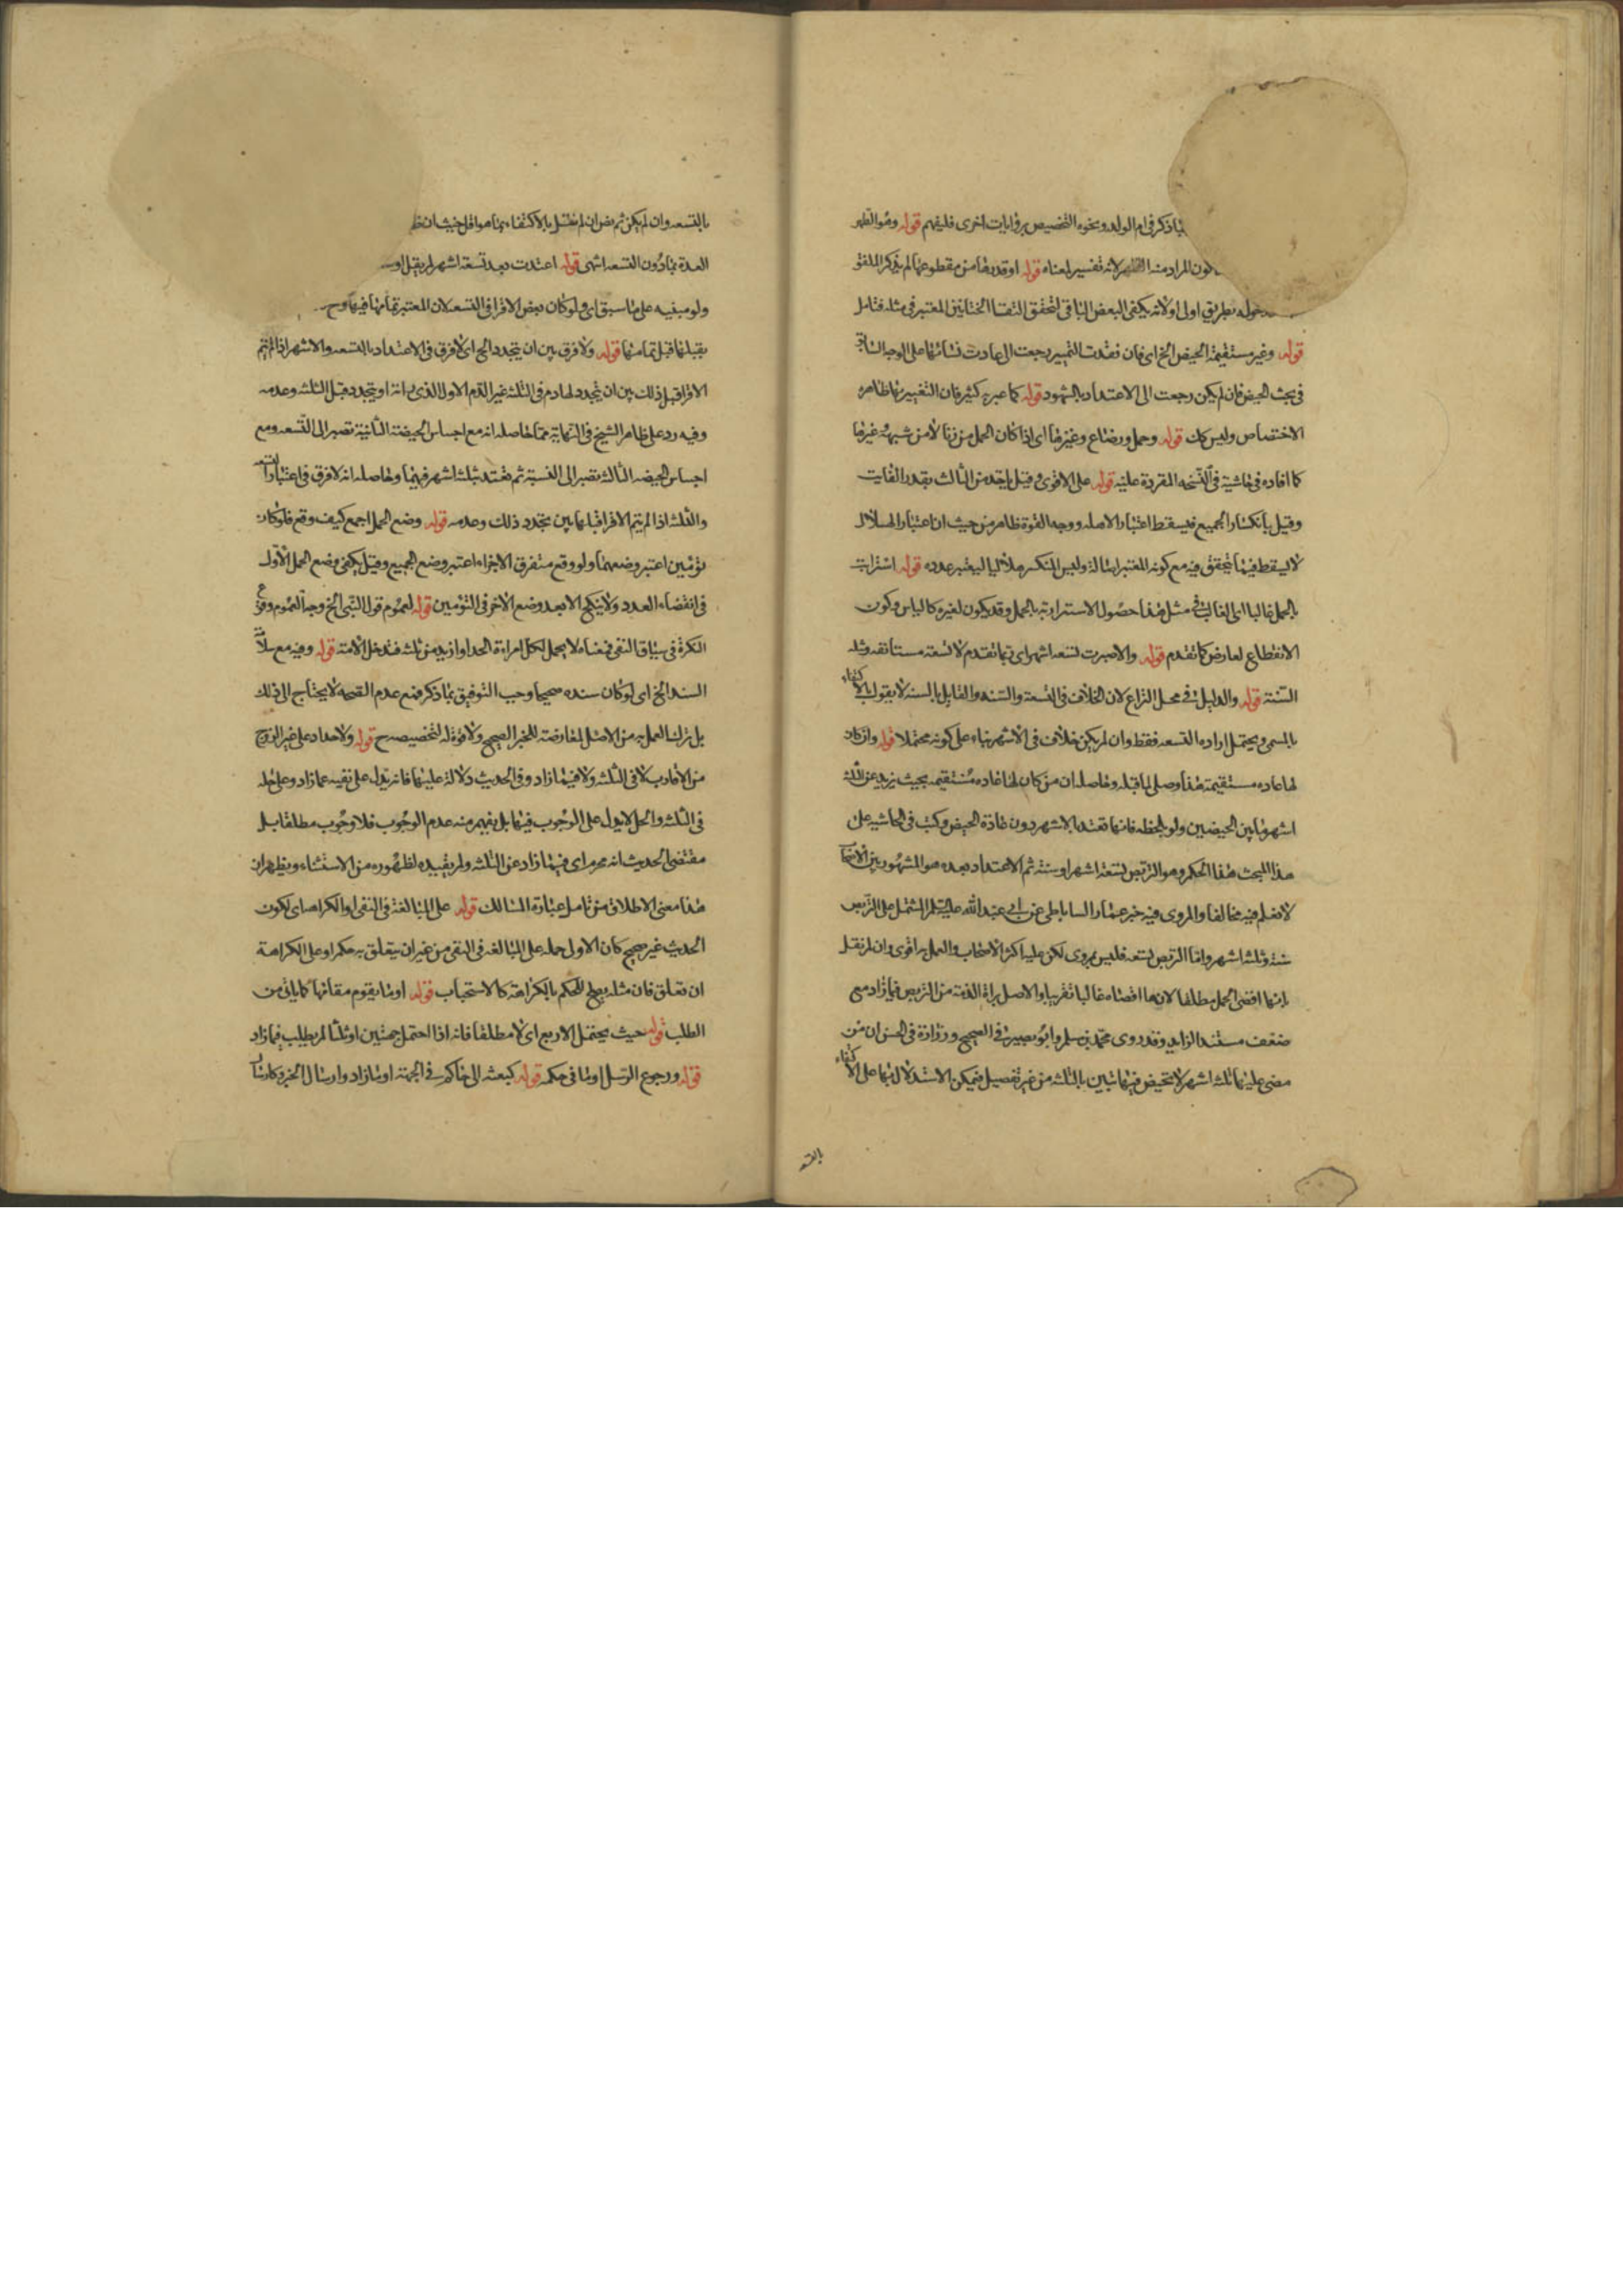 بما ذكر في ام الولد ونحوه التخصيص بروايات اخرى فليفهم قوله وهو الظهر
كون المراد منه الظهر لانه تفسير لمعناه قوله او قدرها من مقطوعها لم يذكر الملفق
دخوله بطريق اولى او لانه يكفى البعض الباقى لتحقق التقاء الختانين المعتبر في مثله فتامل
قوله وغير مستقيمة الحيض الخ اى فان فقدت التمييز رجعت الى عادت نسائها على الوجه السابق
في بحث الحيض فان لم يكن رجعت الى الاعتداد بالشهود قوله كما عبر به كثير فان التغيير بها ظاهره
الاختصاص وليس كك قوله وحمل ورضاع وغيرها اى اذا كان الحمل من زنا لا من شبهة وغيرها
كما افاده في حاشية في النسخه المقروة عليه قوله على الاقوى وقيل ياخذ من الثالث بقدر الفايت
وقيل بانكسار الجميع فيسقط اعتبار الاصله ووجه القوة ظاهر من حيث ان اعتبار الهلال
لا يسقط فيما تحقق فيه مع كونه المعتبر اصالة وليس المنكسر هلاليا ليعتبر عدده قوله استرابت
بالحمل غالبا اى الغالب في مثل هذا حصول الاسترابة بالحمل وقد يكون لغيره كالياس وكون
الانقطاع لعارض كما تقدم قوله والا صبرت تسعه اشهر اى تمام ما تقدم لا تسعة مستانفه ومثله
السنة قوله والدليل في محل النزاع لان الخلاف في التسعة والسنه والقايل بالسنه لا يقول بالاكتفاء
بالمسمى ويحتمل اراده التسعه فقط وان لم يكن خلاف في الاشهر بناء على كونه محتملا قوله وان كان
لها عاده مستقيمة هذا وصلى لما قبله وحاصله ان من كان لها عاده مستقيمه بحيث يزيد عن ثلثه
اشهر ما بين الحيضين ولو بلحظه فانها تعتد بالاشهر دون عادة الحيض وكتب في الحاشيه على
هذا المبحث هذا الحكم وهو التربص تسعة اشهر او سنة ثم الاعتداد بعده هو المشهور بين الاصحاب
لا نعلم فيه مخالفا والمروى فيه خبر عمار الساباطى عن ابي عبد الله عليه السلم المشتمل على التربص
سنة وثلثه اشهر واما التربص تسعه فليس بمروى لكن عليه اكثر الاصحاب والعمل به اقوى وان لم نقل
بانها اقصى الحمل مطلقا لانها اقصاه غالبا تقريبا والاصل براءة الذمة من التربص فيما زاد مع
ضعف مستند الزايد وقد روى محمد بن مسلم وابو بصير في الصحيح وزرارة في الحسن ان من
مضى عليها ثلثه اشهر لا تحيض فيها تبين بالثلثه من غير تفصيل فيمكن الاستدلال بها على الاكتفاء
بالتسعه وان لم يكن ثم نص ان لم نقل بالاكتفاء بما هو اقل حيث ان ظ
العدة بما دون التسعه انتهى قوله اعتدت بعد تسعة اشهر لم يقل او س
ولو مبنيه على ما سبق اى ولو كان بعض الاقرا في التسعه لان المعتبر تمامها فيها وح
بقبلها قبل تمامها قوله ولا فرق بين ان يتجدد الخ اى لا فرق في الاعتداد بالتسعه والاشهر اذا لم تتم
الاقرا قبل ذلك بين ان يتجدد لها دم في الثلثه غير الدم الاول الذى راته او يتجدد قبل الثلثه وعدمه
وفيه رد على ظاهر الشيخ في النهاية مما حاصله انه مع احتباس الحيضة الثانية تصبر الى التسعه ومع
احتباس الحيضه الثالثه تصبر الى السنة ثم تعتد بثلثه اشهر فيهما وحاصله انه لا فرق في اعتبار السنه
والثلثه اذا لم يتم الاقرا قبلها بين تجدد ذلك وعدمه قوله وضع الحمل اجمع كيف وقع فلو كان
توئمين اعتبر وضعهما ولو وقع متفرق الاجزاء اعتبر وضع الجميع وقيل يكفى وضع الحمل الاول
في انقضاء العدد ولا ينكح الا بعد وضع الاخر في التوئمين قوله لعموم قول النبي الخ وجه العموم وقوع
النكرة في سياق النفى فمعناه لا يحل لكل امراءة الحداد ازيد من ثلثه فتدخل الامة قوله وفيه مع سلامة
السند الخ اى لو كان سنده صحيحا وجب التوفيق بما ذكر فمع عدم الصحه لا يحتاج الى ذلك
بل نزلنا العمل به من الاصل لمعارضته للخبر الصحيح ولا قوة له لتخصيصه ح قوله ولا حداد على غير الزوج
من الاقارب لا في الثلثه ولا فيما زاد وفي الحديث دلالة عليها فانه يدل على نفيه عما زاد وعلى حله
في الثلثه والحل لا يدل على الوجوب فيها بل يفهم منه عدم الوجوب فلا وجوب مطلقا بل
مقتضى الحديث انه محرم اى فيما زاد عن الثلثه ولم يقيده لظهوره من الاستثناء ويظهر ان
هذا معنى الاطلاق من تامل عبارة المسالك قوله على المبالغة في النفى او الكراهه اى لكون
الحديث غير صحيح كان الاولى حمله على المبالغه في النفى من غير ان يتعلق به حكم او على الكراهة
ان تعلق فان مثله يصلح للحكم بالكراهة كالاستحباب قوله او ما يقوم مقامها كما ياتى من
الطلب قوله حيث يحتمل الاربع اى لا مطلقا فانه اذا احتمل جهتين او ثلثا لم يطلب فيما زاد
قوله ورجوع الرسل او ما في حكمه قوله كبعثه الى حاكم في الجهة او ما زاد وارسال الخبر وكارسال